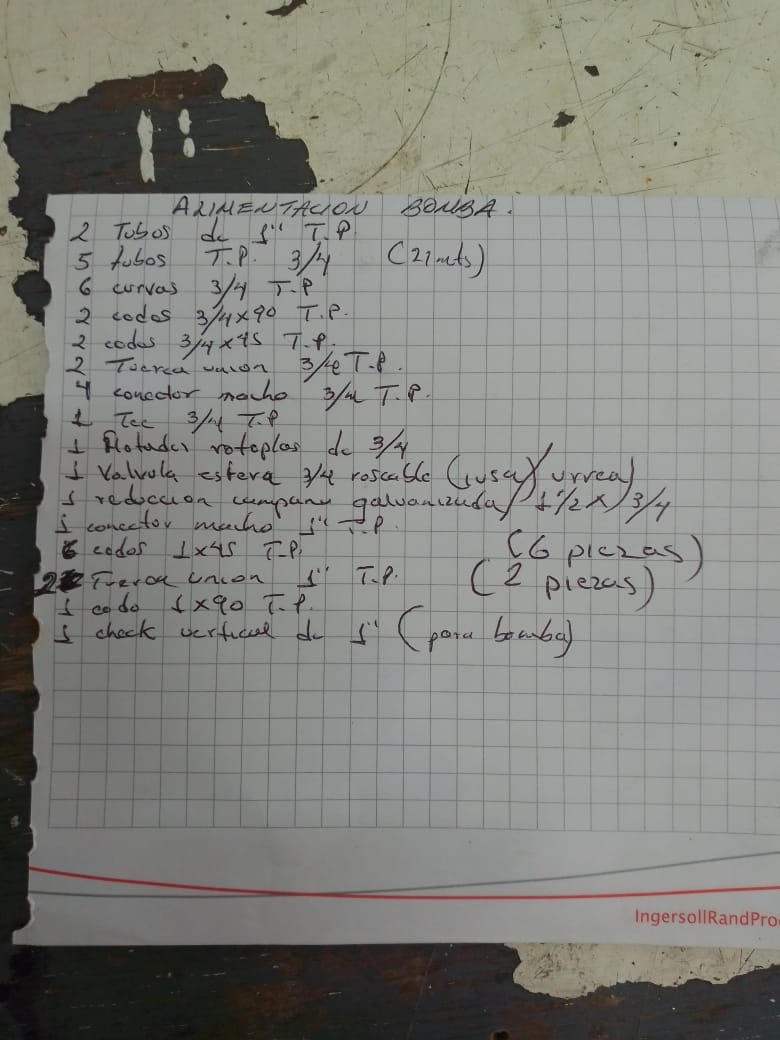 ALIMENTACION BOMBA.
2 Tubos de 1" T.P
5 tubos T.P. 3/4 (21 mts)
6 curvas 3/4 T.P
2 codos 3/4x90 T.P.
2 codos 3/4x45 T.P.
2 Tuerca union 3/4 T.P.
4 conector macho 3/4 T.P.
1 Tee 3/4 T.P
1 Flotador rotoplas de 3/4
1 Valvula esfera 3/4 roscable (iusa/urrea)
1 reduccion campana galvanizada 1 1/2 x 3/4
1 conector macho 1" T.P.
6 codos 1x45 T.P. (6 piezas)
2 Tuerca union 1" T.P. (2 piezas)
1 codo 1x90 T.P.
1 check vertical de 1" (para bomba)
IngersollRandPro